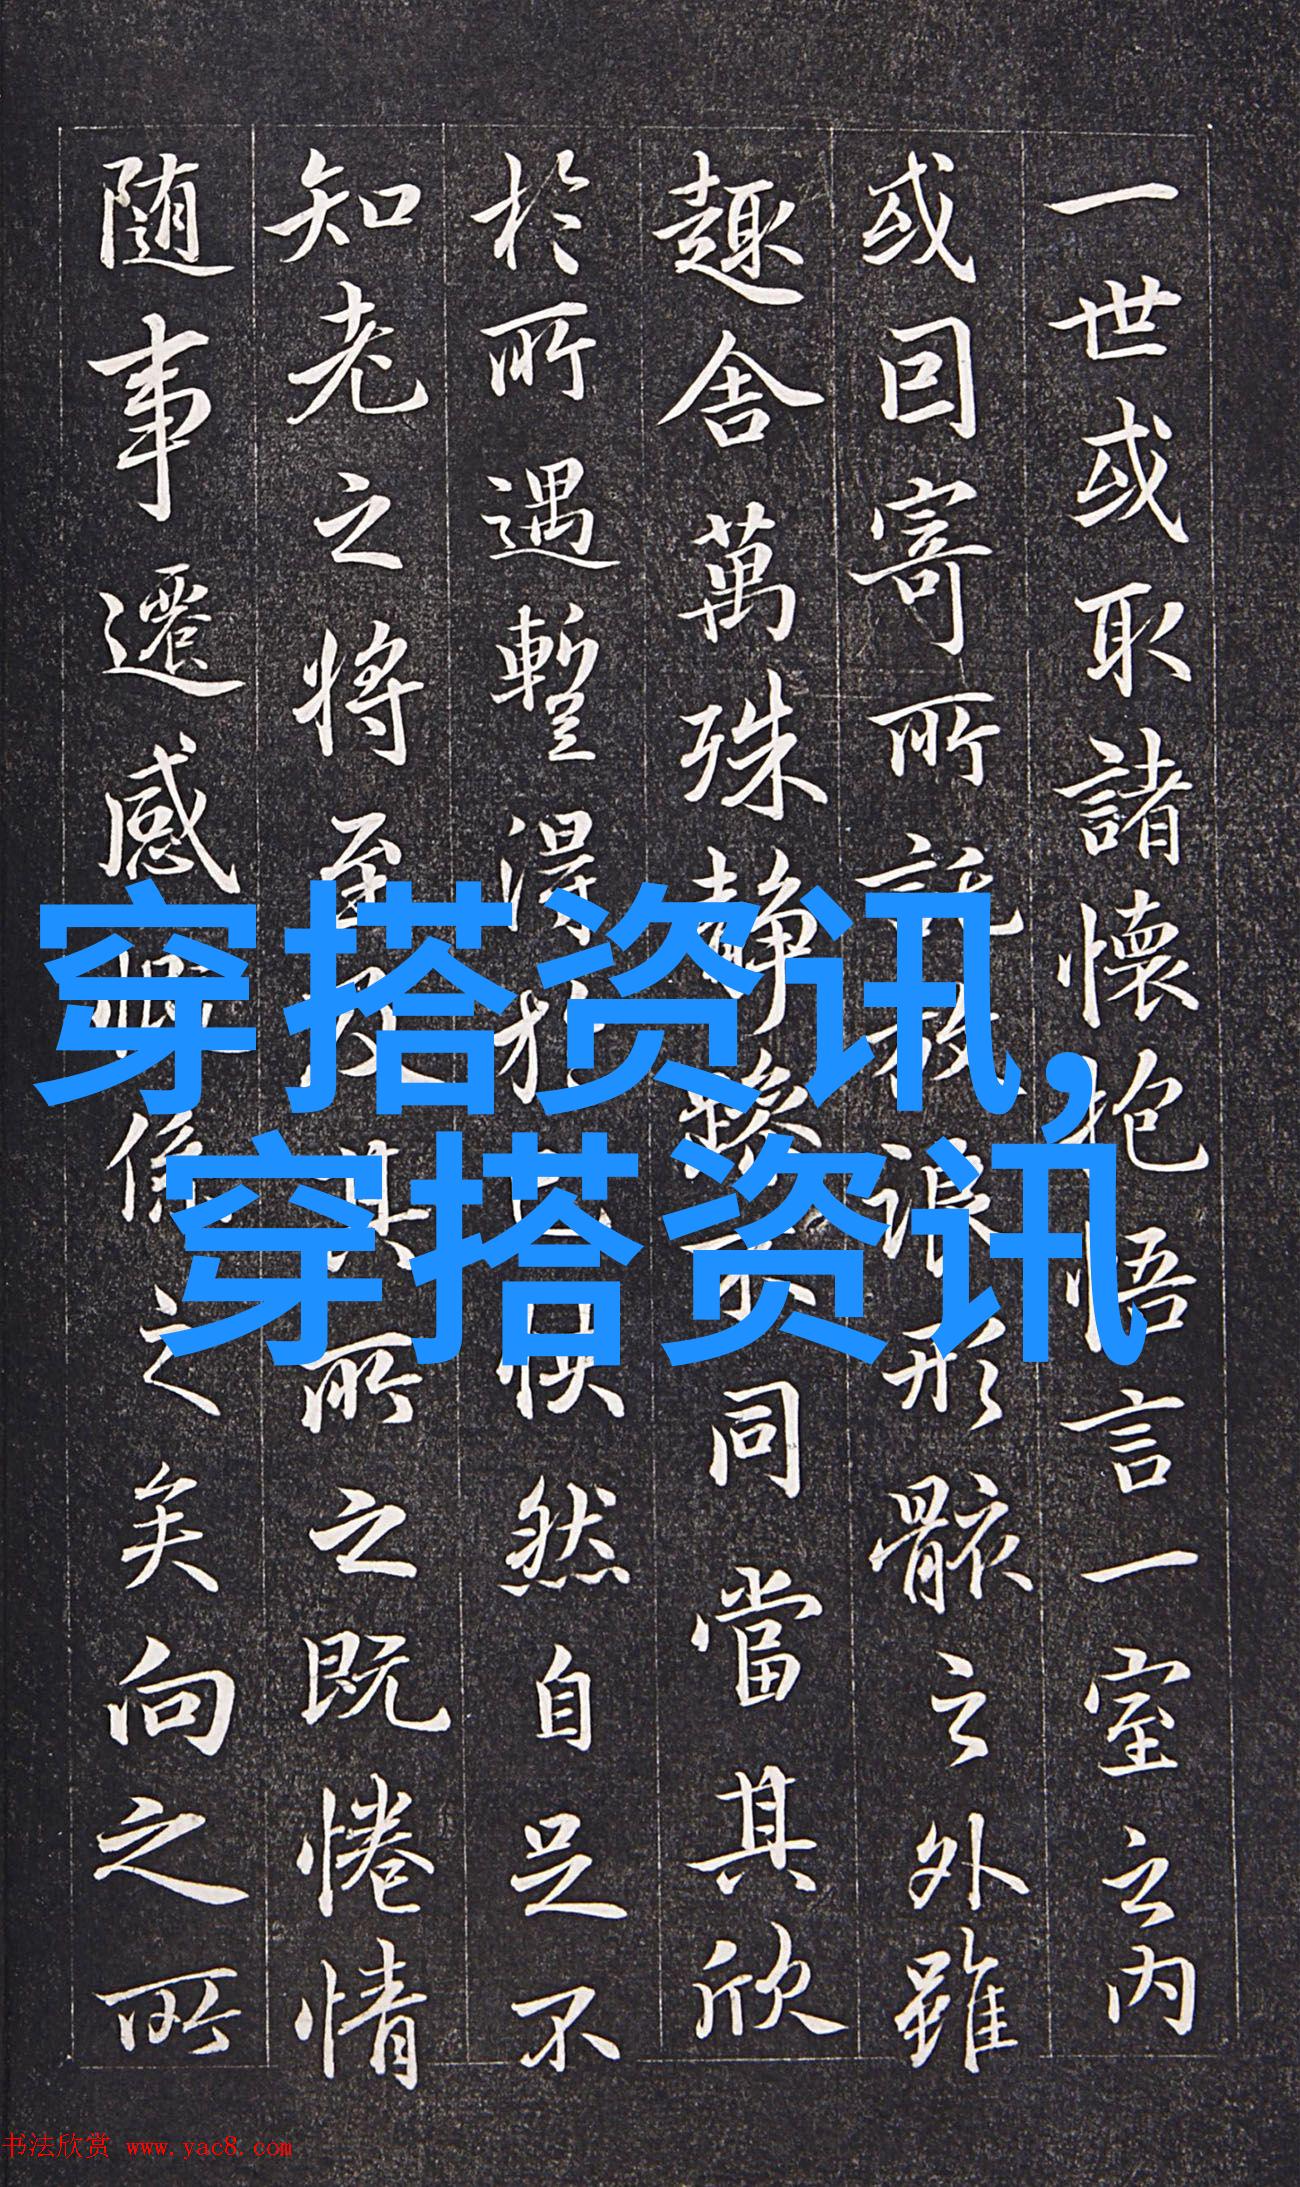 一世或取諸懷抱悟言一室之内
或囙寄所託放浪形骸之外雖
趣舍萬殊静躁不同當其欣
於所遇暫得於己快然自足不
知老之將至及其所之既惓情
随事遷感慨係之矣向之所
穿搭资讯,
穿搭资讯
书法欣赏 www.yac8.com